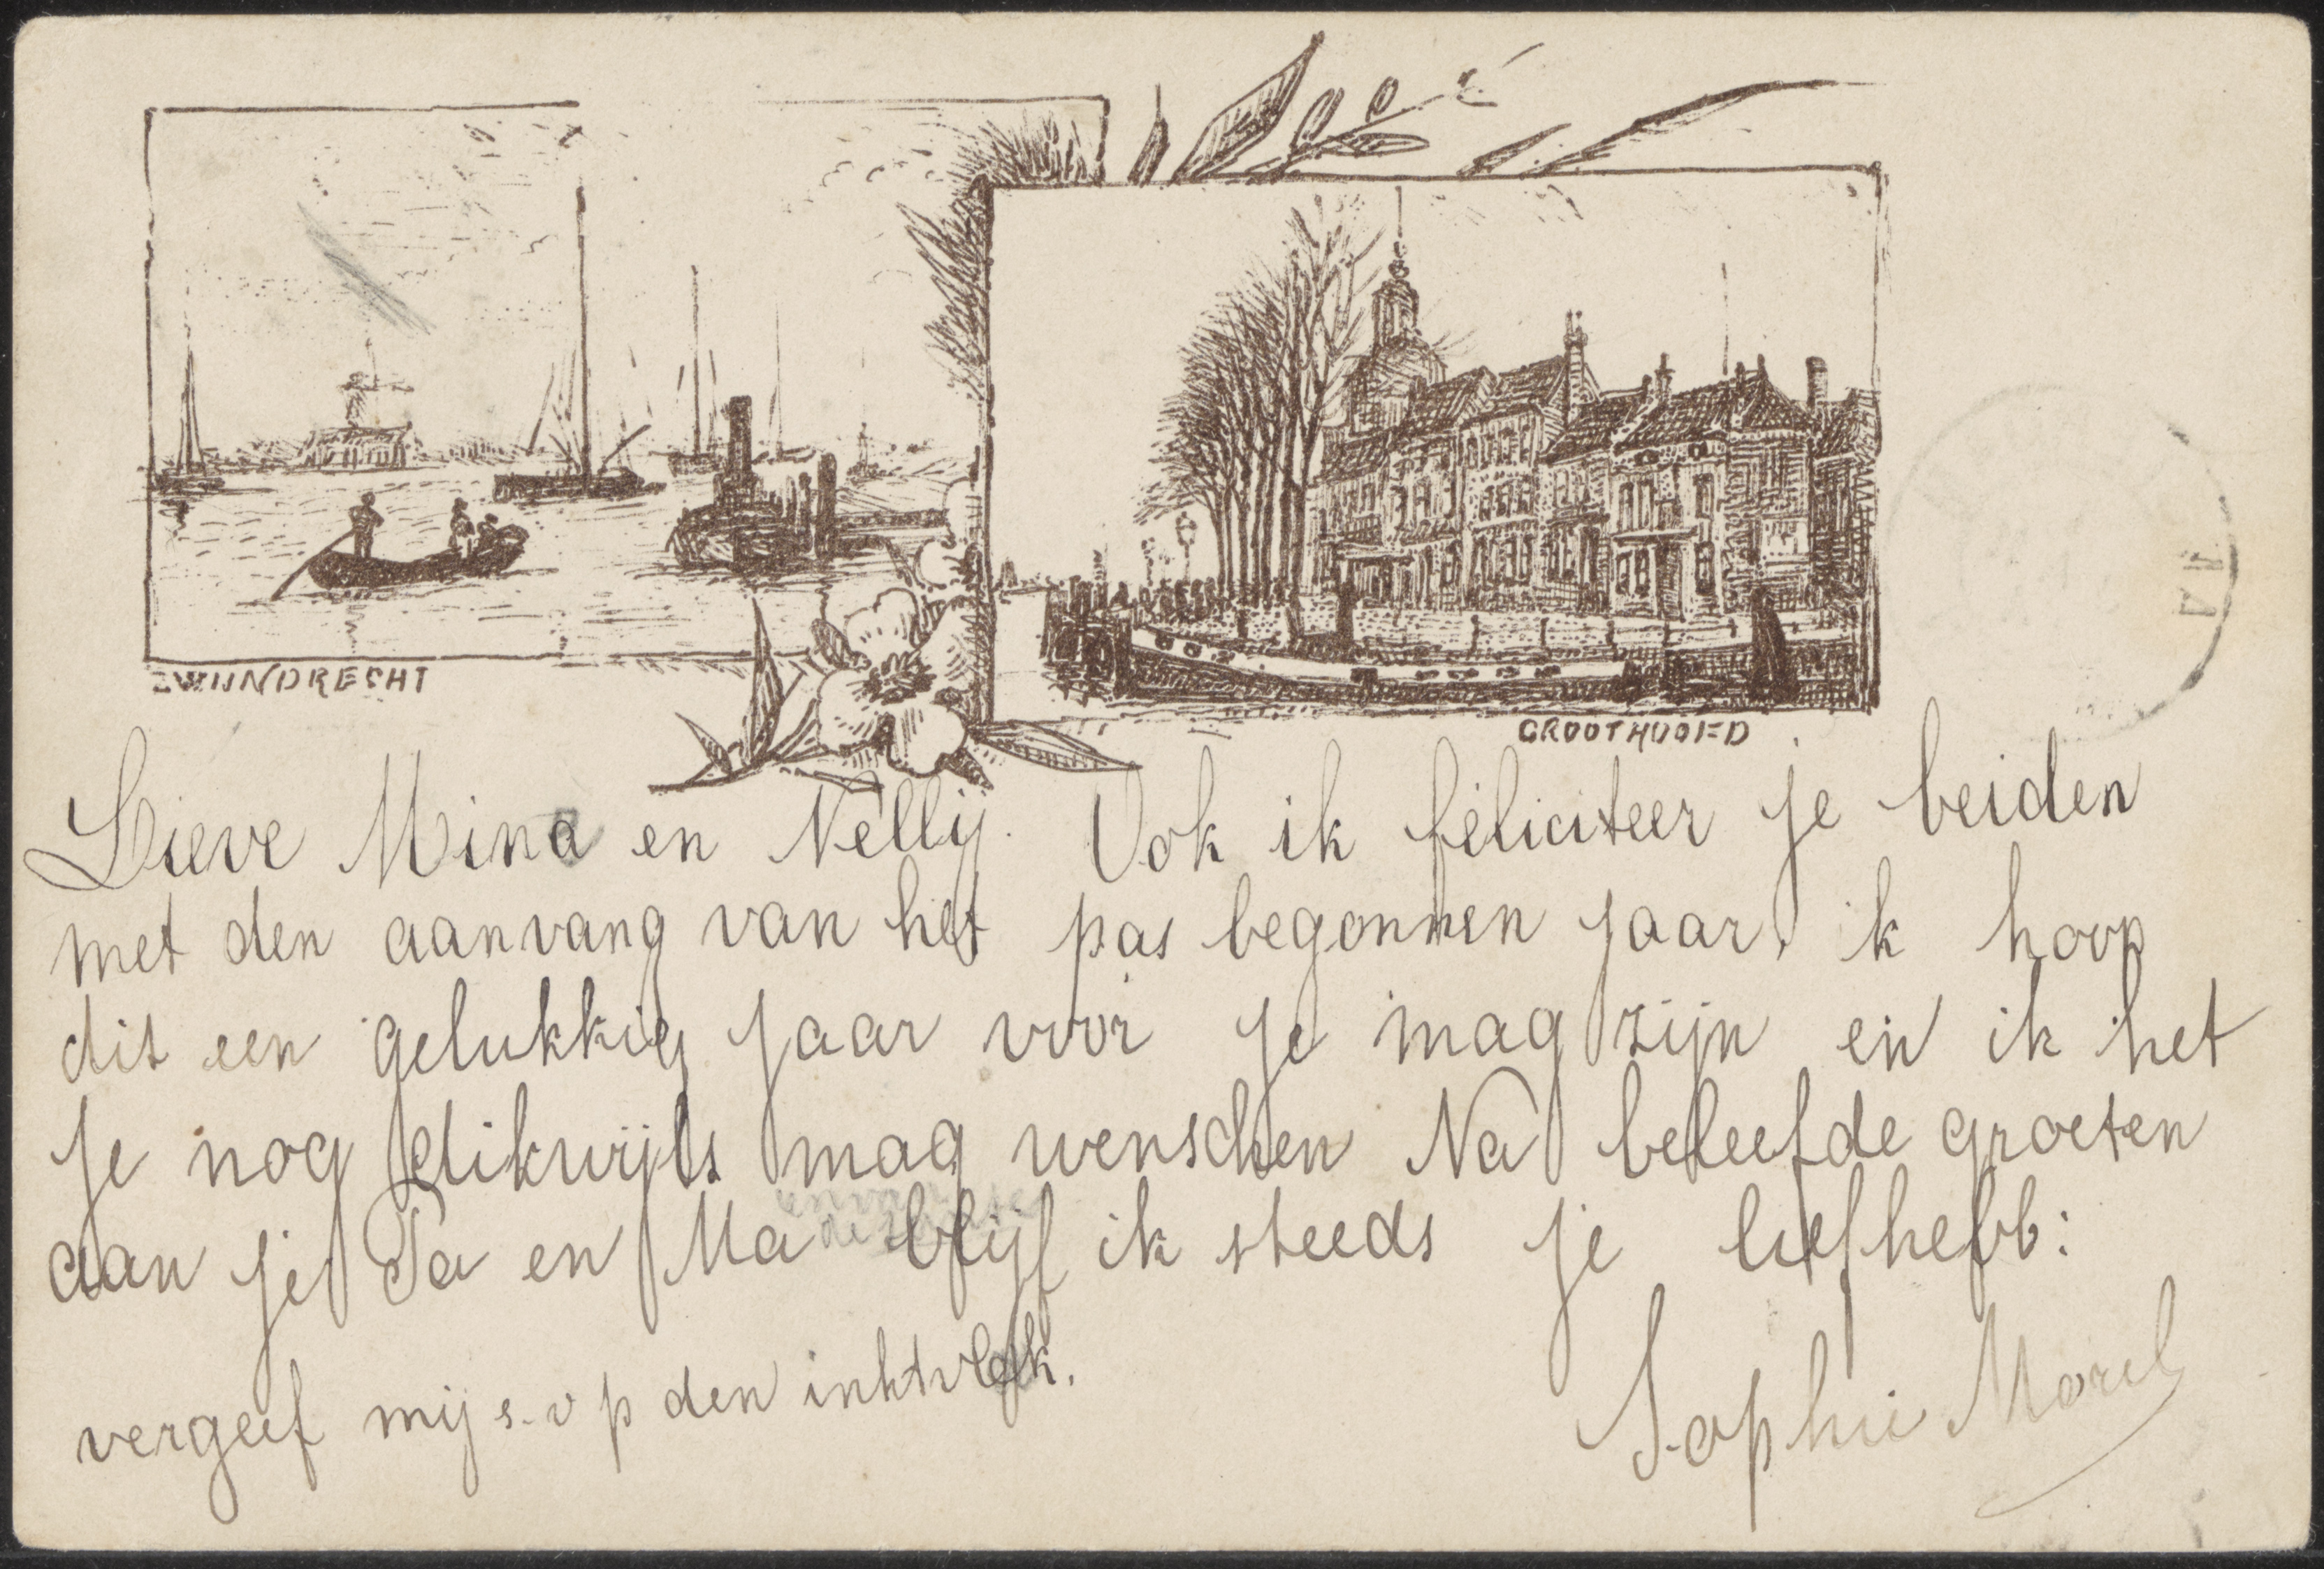 ZWIJNDRECHT
GROOTHOOFD
Lieve Mina en Nellij. Ook ik feliciteer je beiden
met den aanvang van het pas begonnen jaar, ik hoop
dit een gelukkig jaar voor je mag zijn en ik het
je nog dikwijls mag wenschen Na beleefde groeten
aan je Pa en Ma blijf ik steeds je liefhebb:
Sophie Morel
vergeef mij s.v p den inktvlek.